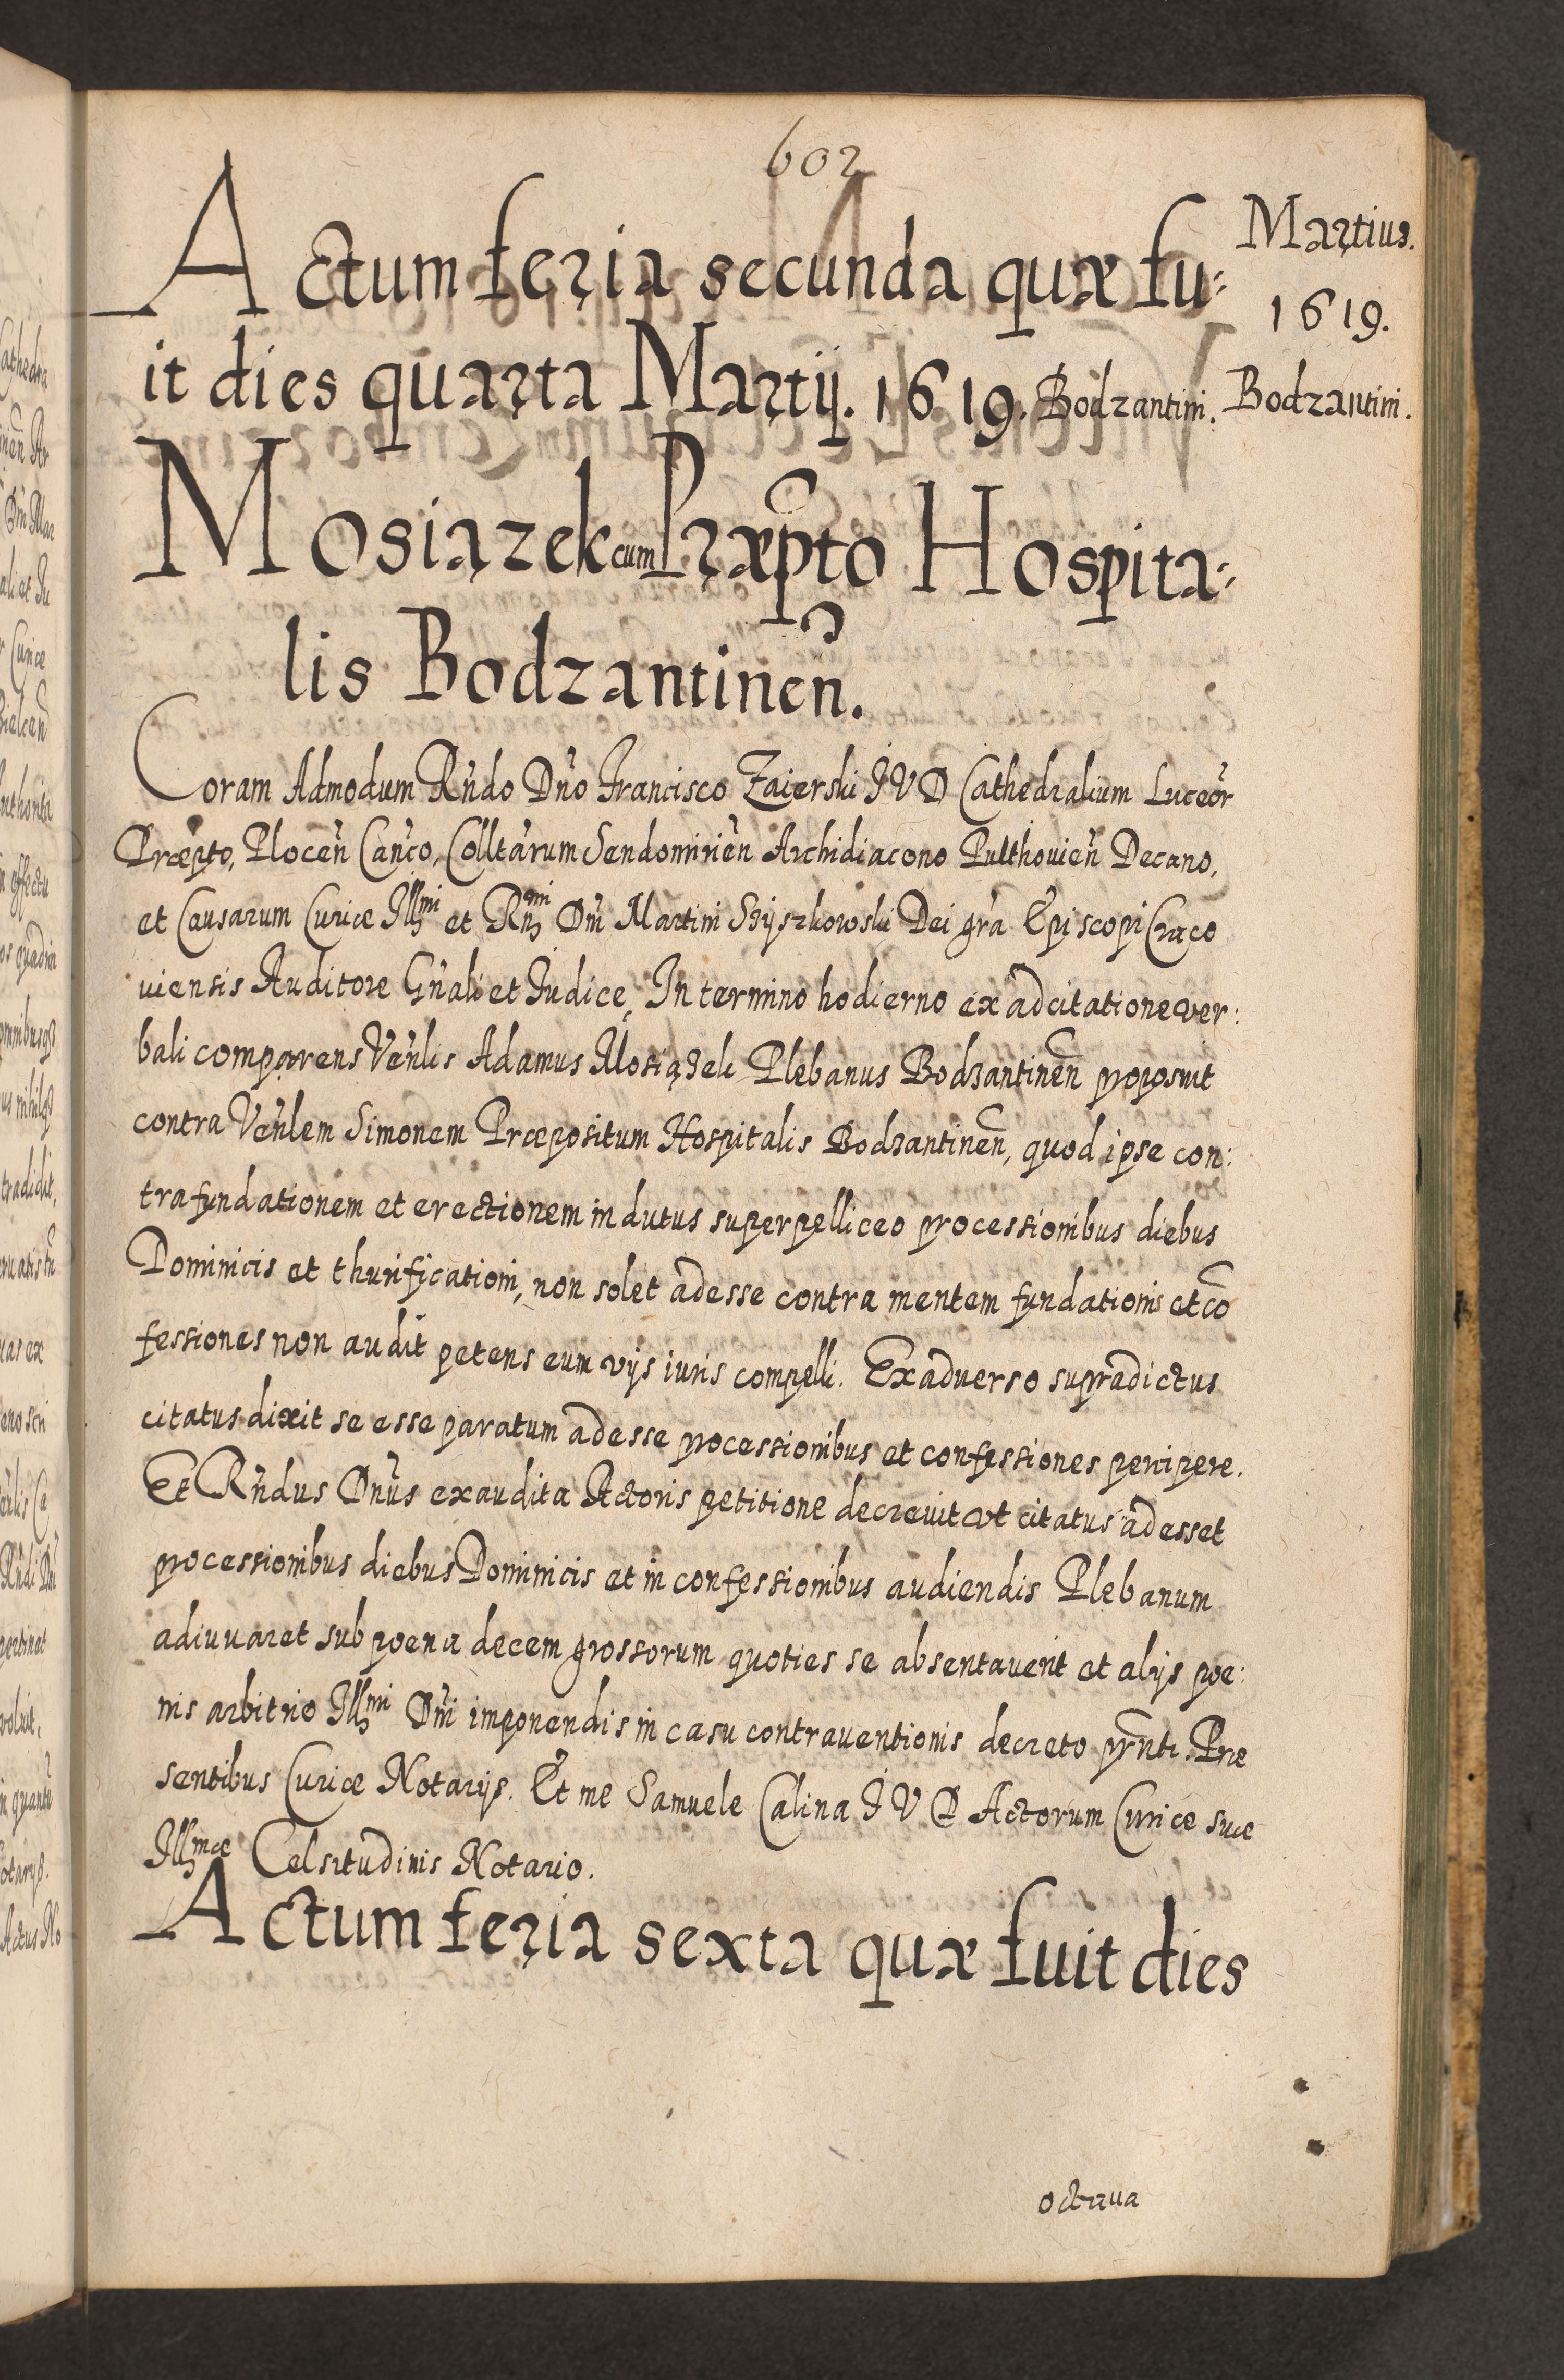 602
Martius.
1619.
Bodzantini.
Actum feria secunda quæ fu:
it dies quarta Martij. 1619. Bodzantini.
Mosiązek cum Præpto Hospita:
lis Bodzantineñ.
Coram Admodum Rñdo Dño Francisco Zaierski JVD Cathedralium Luceor̃
Præpto, Plocen̄ Canco, Colltarum Sendomirien̄ Archidiacono Pulthouien̄ Decano,
et Causarum Curiæ Illmi et Rmi Dñi Martini Szyszkowski Dei gr̃a Episcopi Craco
uiensis Auditore Gñali et Judice, In termino hodierno ex adcitatione ver:
bali comparens Veñlis Adamus Mosiązek Plebanus Bodzantineñ proposuit
contra Veñlem Simonem Præpositum Hospitalis Bodzantineñ, quod ipse con:
tra fundationem et erectionem indutus superpelliceo processionibus diebus
Dominicis et thurificationi, non solet adesse contra mentem fundationis et cō
fessiones non audit petens eum vijs iuris compelli. Ex aduerso supradictus
citatus dixit se esse paratum adesse processionibus et confessiones percipere.
Et Rñdus Dñus exaudita Actoris petitione decreuit vt citatus adesset
processionibus diebus Dominicis et in confessionibus audiendis Plebanum
adiuuaret sub poena decem grossorum quoties se absentauerit et alijs poe:
nis arbitrio Illmi Dñi imponendis in casu contrauentionis decreto pr̃nti. Præ
sentibus Curiæ Notarijs. Et me Samuele Calina JVD Actorum Curiæ suæ
Illmæ Celsitudinis Notario.
Actum feria sexta quæ fuit dies
octaua